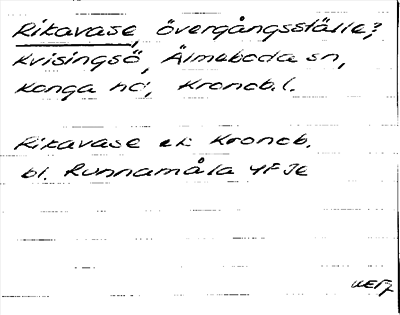 Rikavase, övergångsställe?
Krisingsö, Älmeboda sn,
Konga hd, Kronob.l.
Rikavase ek Kronob.
bl. Runnamåla 4F Je